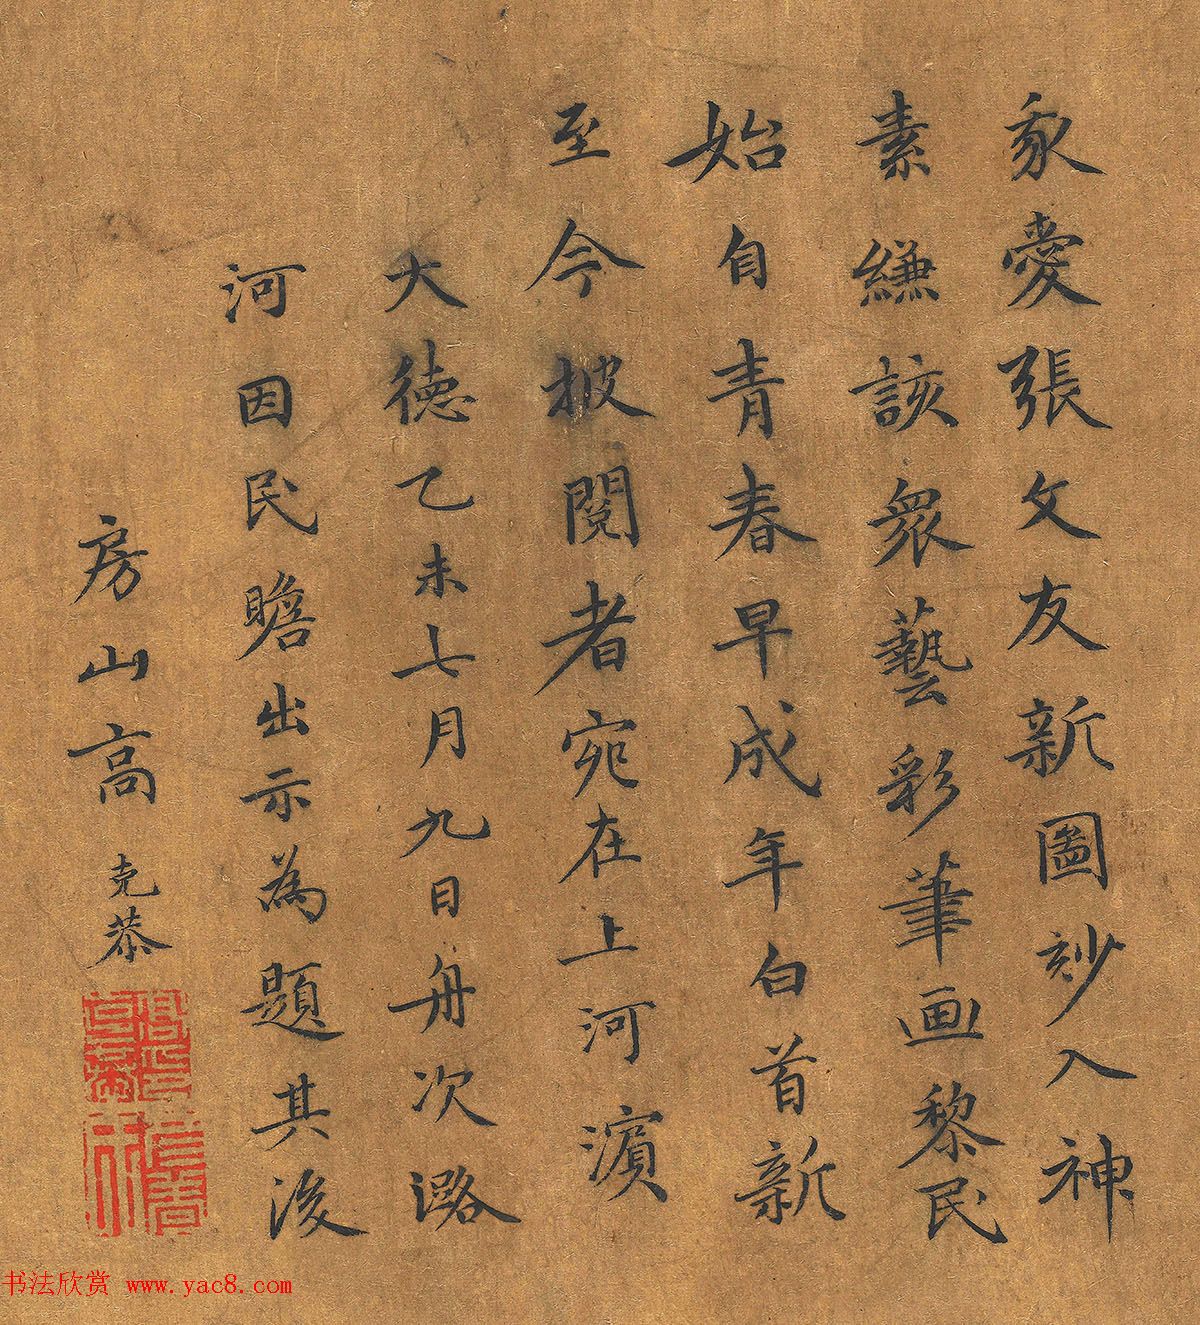 我愛張文友新圖玅入神
素縑該眾藝彩筆画黎民
始自青春早成年白首新
至今披閱者宛在上河濱
大德乙未七月九日舟次潞
河因民瞻出示為題其後
房山高克恭
书法欣赏 www.yac8.com